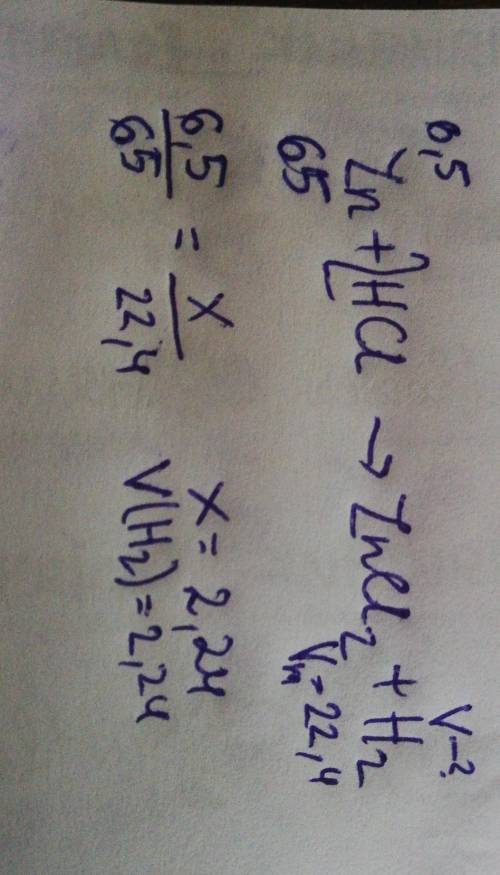 6,5 V-?
Zn + 2HCl → ZnCl₂ + H₂
65 Vm=22,4
6,5/65 = x/22,4 x = 2,24
V(H₂) = 2,24